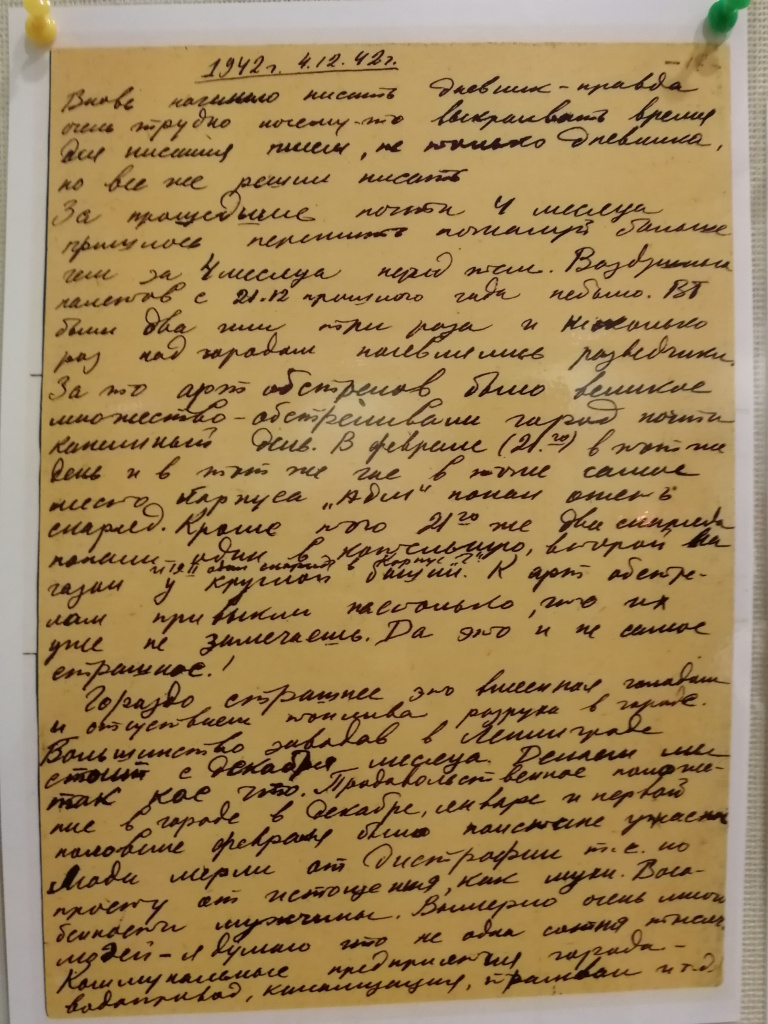 1942г. 4.12.42г.
Вновь начинаю писать дневник - правда
очень трудно почему-то выкраивать время
для писания писем, не только дневника,
но все же решил писать
За прошедшие почти 4 месяца
пришлось пережить пожалуй больше
чем за 4 месяца перед тем. Воздушных
налетов с 21.12 прошлого года небыло. ВТ
были два или три раза и несколько
раз над городом появлялись разведчики.
За то арт обстрелов было великое
множество - обстреливали город почти
каждый день. В феврале (21.го) в тот же
день и в тот же час в тоже самое
место Корпуса "Адм" попал опять
снаряд. Кроме того 21го же два снаряда
попали один в котельную, второй на
газон у круглой башни. К арт обстре-
лам привыкли настолько, что их
уже не замечаешь. Да это и не самое
страшное.!
Гораздо страшнее это внесенная голодом
и отсуствием топлива разруха в городе.
Большинство заводов в Ленинграде
стоит с декабря месяца. Делаем мы
так кое что. Продовольственное положе-
ние в городе в декабре, январе и первой
половине февраля было поистине ужасным
Люди мерли от дистрофии т.е. по
просту от истощения, как мухи. Восо-
бенности мужчины. Вымерло очень много
людей - я думаю что не одна сотня тысяч.
Коммунальные предприятия города -
водопровод, канализация, трамваи и т.д.